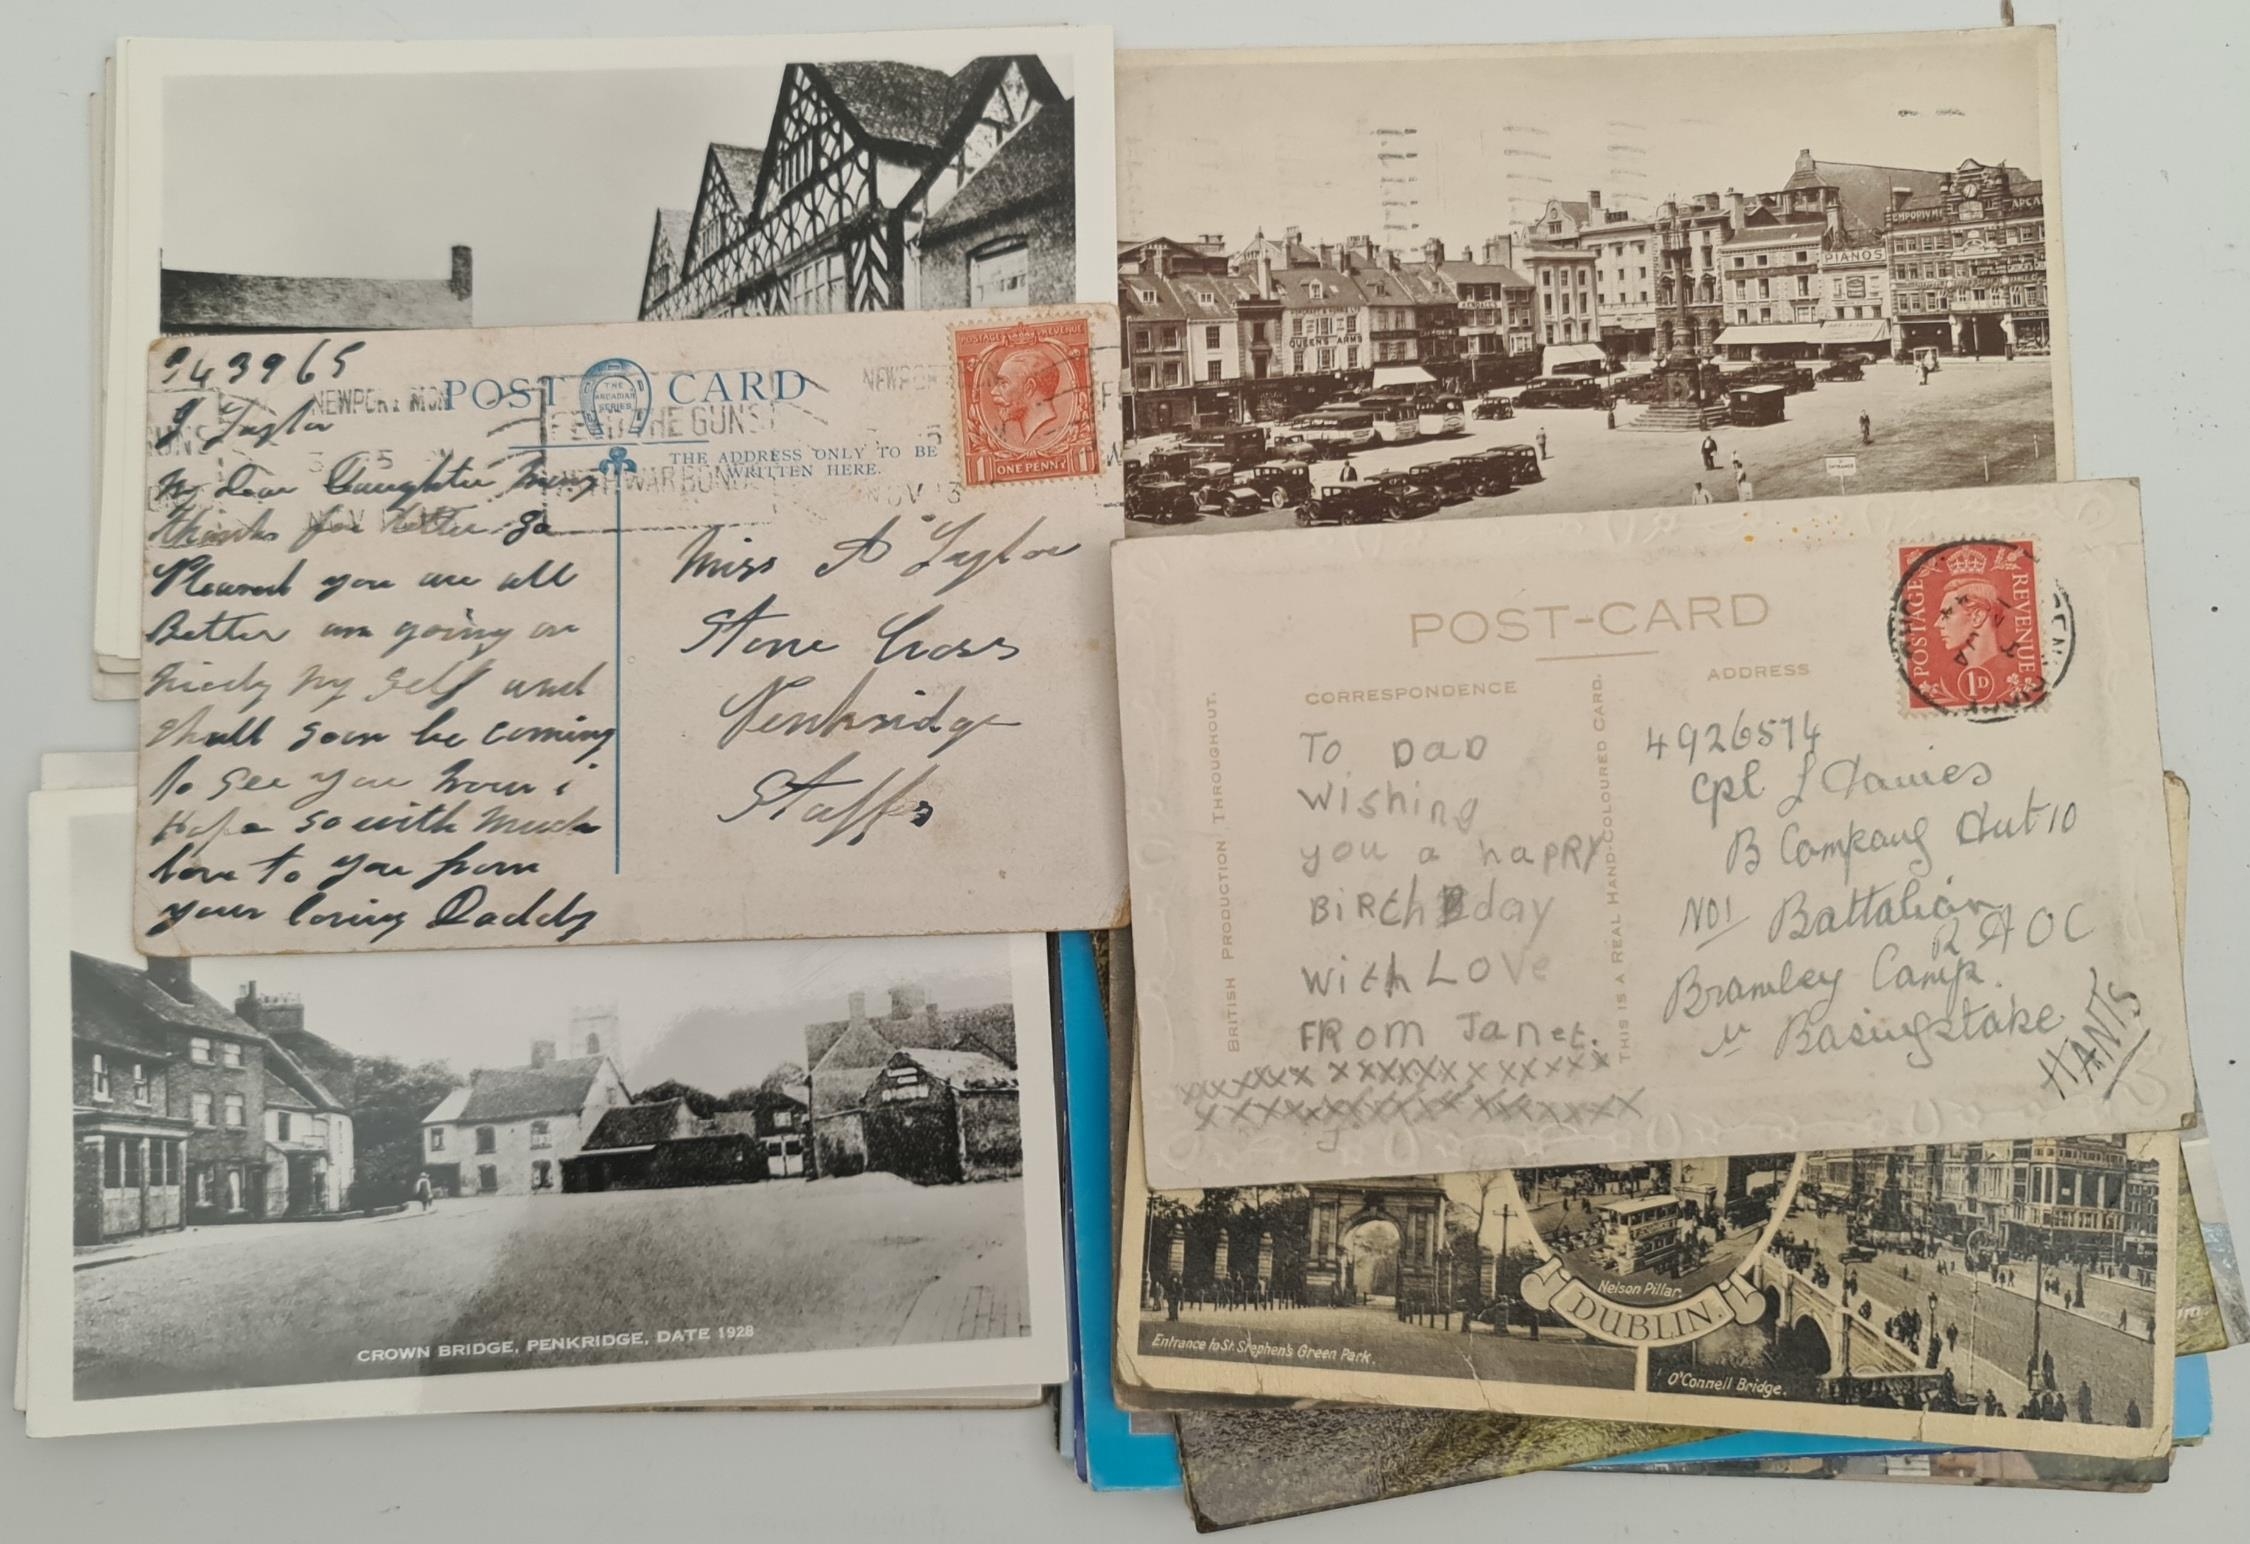 EMPORIVM
ARCA
PIANOS
QUEENS ARMS
ENTRANCE
243965
J Taylor
My Dear Daughter
thanks for letter so
Pleased you are all
Better am going on
nicely my self and
shall soon be coming
to see you know i
Hope so with much
love to you from
your loving Daddy
POST CARD
THE
ARCADIAN
SERIES
THE ADDRESS ONLY TO BE
WRITTEN HERE.
NEWPORT MON
FEED THE GUNS
WITH WAR BONDS
NOV
NOV 13
POSTAGE REVENUE
1 ONE PENNY 1
Miss A Taylor
Stone Cross
Penkridge
Staffs
POST-CARD
CORRESPONDENCE
ADDRESS
BRITISH PRODUCTION THROUGHOUT.
THIS IS A REAL HAND-COLOURED CARD.
POSTAGE REVENUE
1D
To DaD
Wishing
you a haPPY
BiRchday
With LOVe
FROM Janet.
xxxxxxx xxxxxxx x xxxxx
4926574
Cpl L Davies
B Company Hut 10
NO1 Battalion
R A O C
Bramley Camp.
Nr Basingstoke
HANTS
CROWN BRIDGE, PENKRIDGE, DATE 1928
Nelson Pillar.
DUBLIN.
Entrance to St. Stephen's Green Park.
O'Connell Bridge.